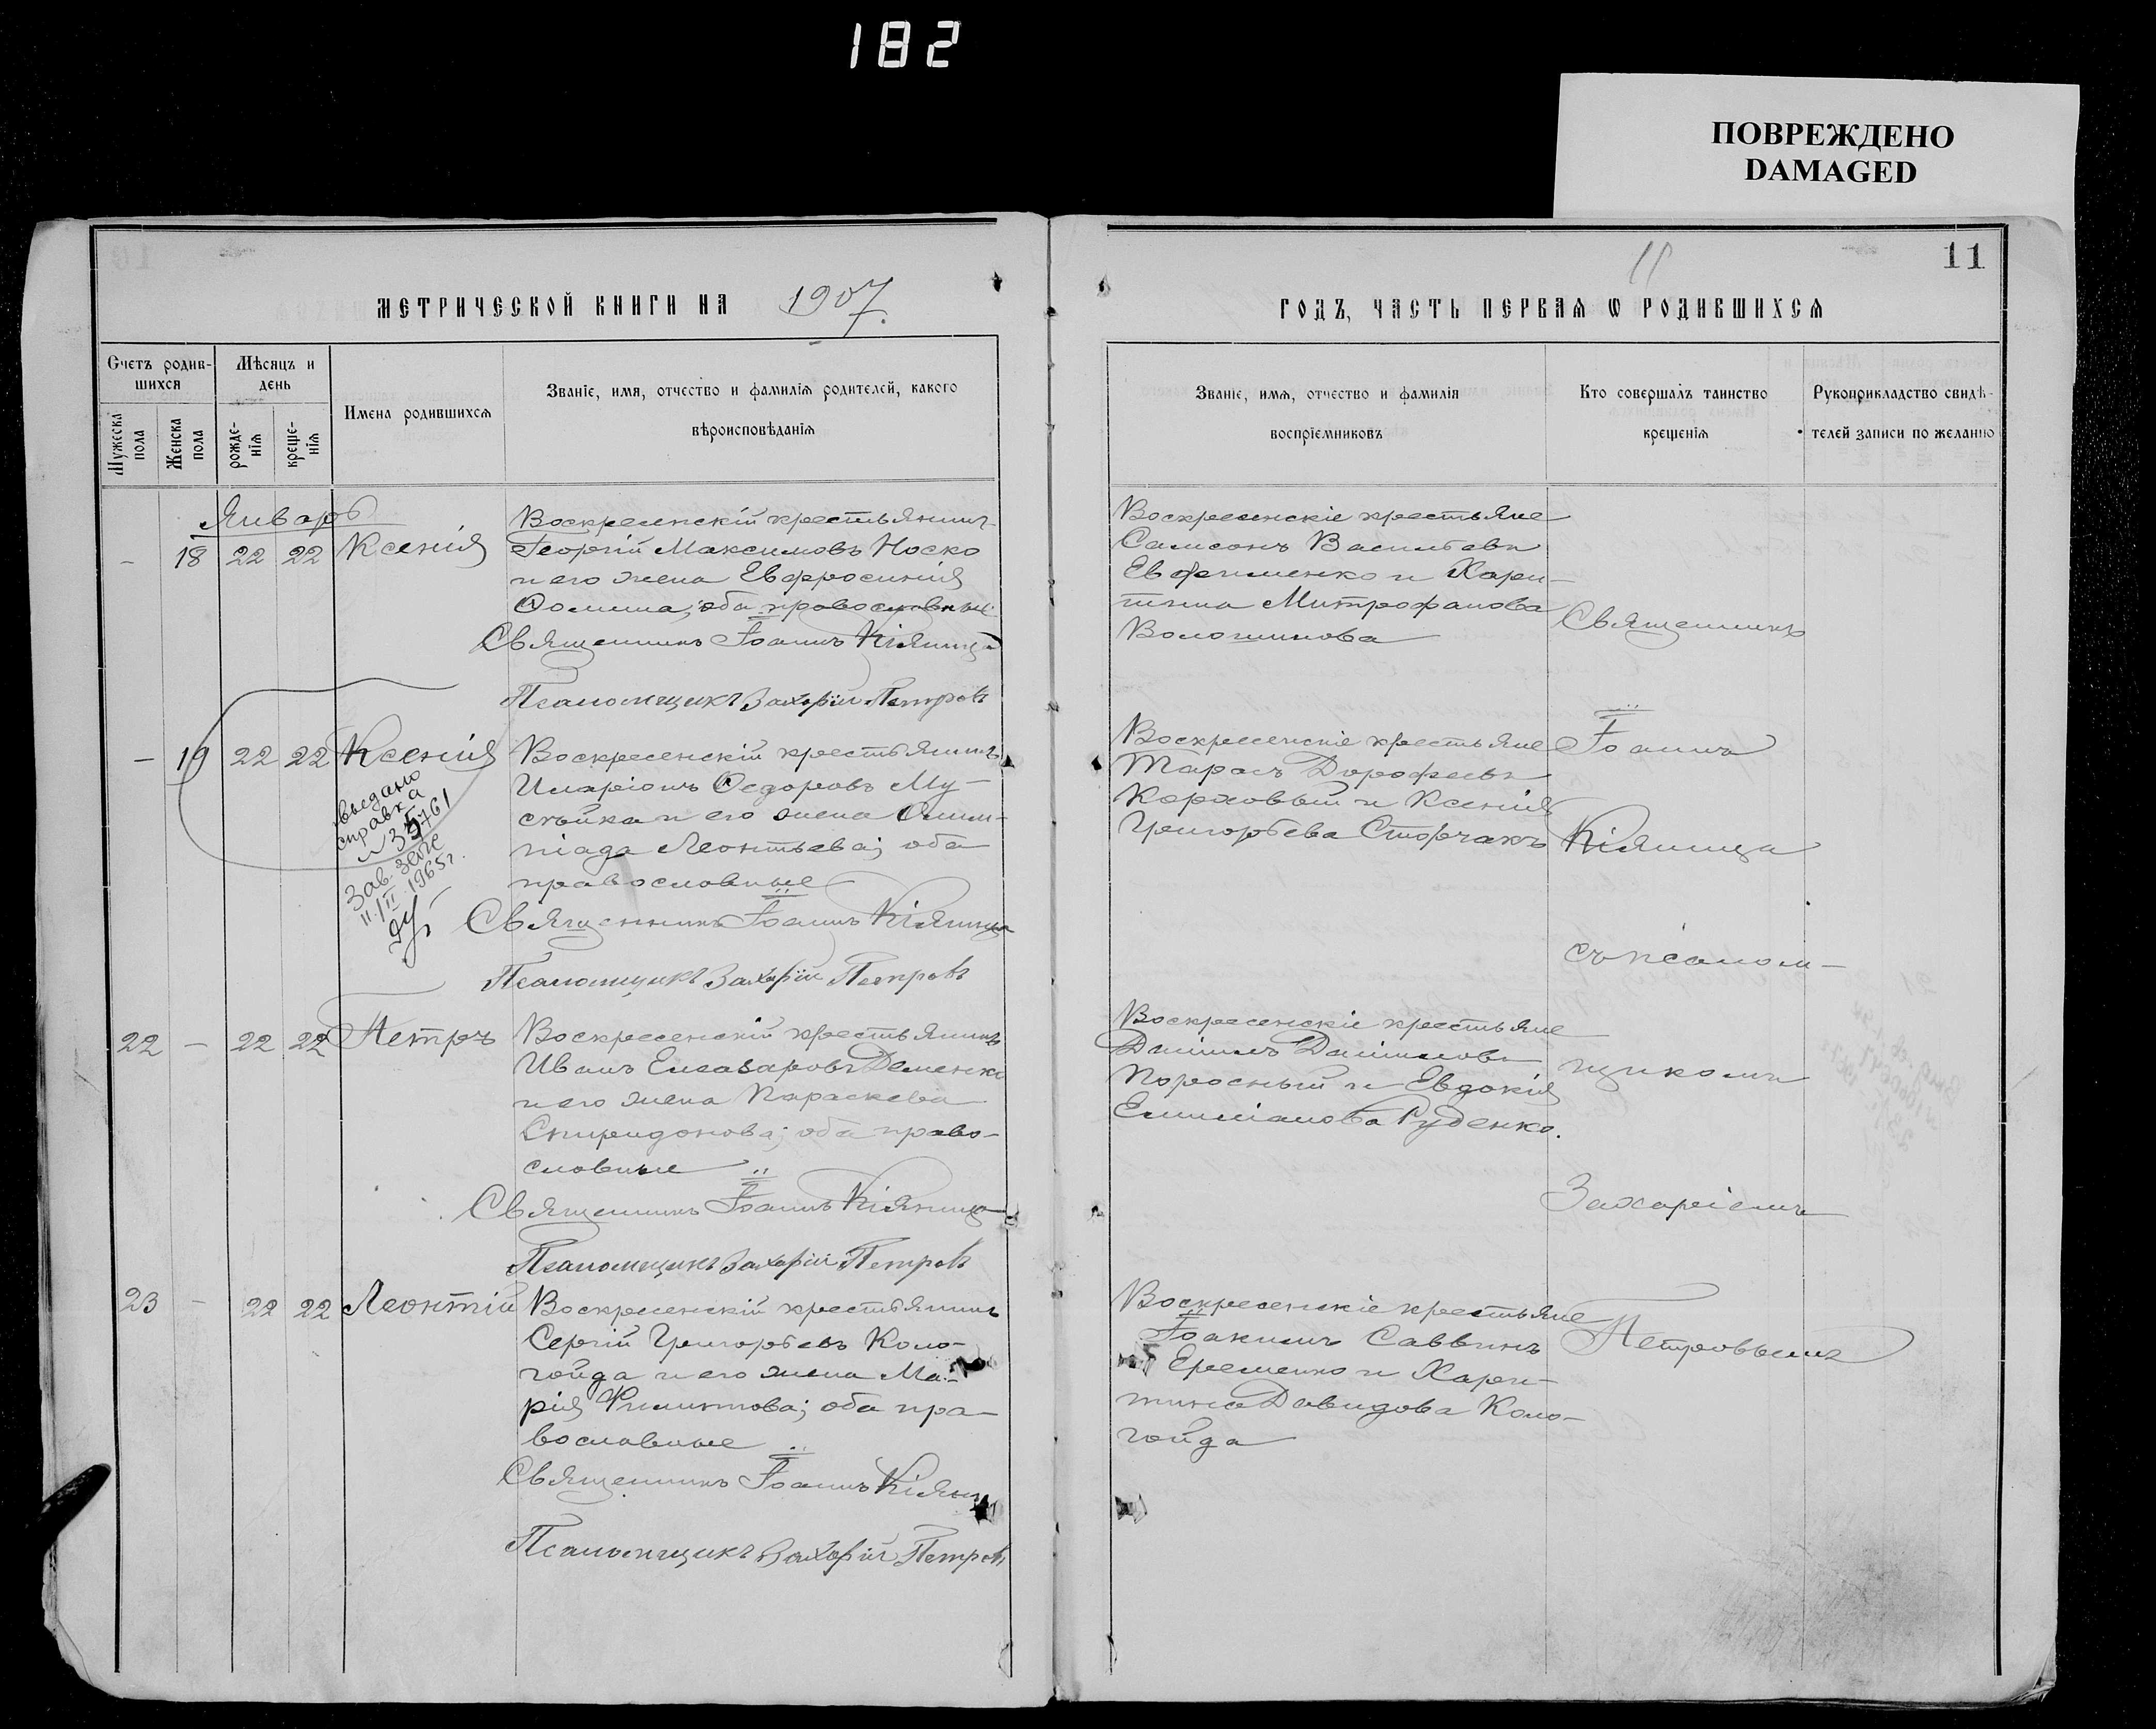 182
ПОВРЕЖДЕНО
DAMAGED
МЕТРИЧЕСКОЙ КНИГИ НА 1907.
Счетъ родив-
шихся
Мѣсяцъ и
день
Имена родившихся
Званіе, имя, отчество и фамилія родителей, какого
вѣроисповѣданія
Мужеска
пола
Женска
пола
рожде-
нія
креще-
нія
Январь
- 18 22 22 Ксенія
Воскресенскій крестьянинъ
Георгій Максимовъ Носко
и его жена Евфросинія
Ѳомина; оба православные.
Священникъ Іоаннъ Кіяница
Псаломщикъ Захарій Петровъ
- 19 22 22 Ксенія
выдано
справка
№ 35761
Зав. загс
11/II 1965 г.
Воскресенскій крестьянинъ
Иларіонъ Ѳедоровъ Му-
сѣйка и его жена Олим-
піада Леонтьева; оба
православные
Священникъ Іоаннъ Кіяница
Псаломщикъ Захарій Петровъ
22 - 22 22 Петръ
Воскресенскій крестьянинъ
Иванъ Елеазаровъ Деменко
и его жена Параскева
Спиридонова; оба право-
славные
Священникъ Іоаннъ Кіяница
Псаломщикъ Захарій Петровъ
23 - 22 22 Леонтій
Воскресенскій крестьянинъ
Сергій Григорьевъ Коло-
гойда и его жена Ма-
рія Филиптова; оба пра-
вославные
Священникъ Іоаннъ Кіяни
Псаломщикъ Захарій Петровъ
11
11
ГОДЪ, ЧАСТЬ ПЕРВАЯ Ѡ РОДИВШИХСЯ
Званіе, имя, отчество и фамилія
воспріемниковъ
Кто совершалъ таинство
крещенія
Рукоприкладство свидѣ-
телей записи по желанію
Воскресенскіе крестьяне
Самсонъ Васильевъ
Евфименко и Хари-
тина Митрофанова
Волошинова
Воскресенскіе крестьяне
Тарасъ Дорофеевъ
Коржовый и Ксенія
Григорьева Сторчакъ
Воскресенскіе крестьяне
Даніилъ Данииловъ
Поросный и Евдокія
Емиліанова Руденко.
Воскресенскіе крестьяне
Іоакимъ Саввинъ
Еременко и Хари-
тина Давидова Коло-
гойда
Священникъ
Іоаннъ
Кіяница
съ псалом-
щикомъ
Захаріемъ
Петровымъ